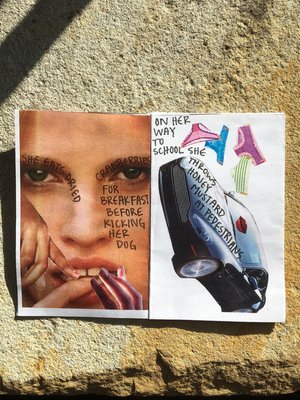 SHE EATS DRIED
CRANBERRIES
FOR
BREAKFAST
BEFORE
KICKING
HER
DOG
ON HER
WAY
TO
SCHOOL SHE
THROWS
HONEY
MUSTARD
AT PEDESTRIANS